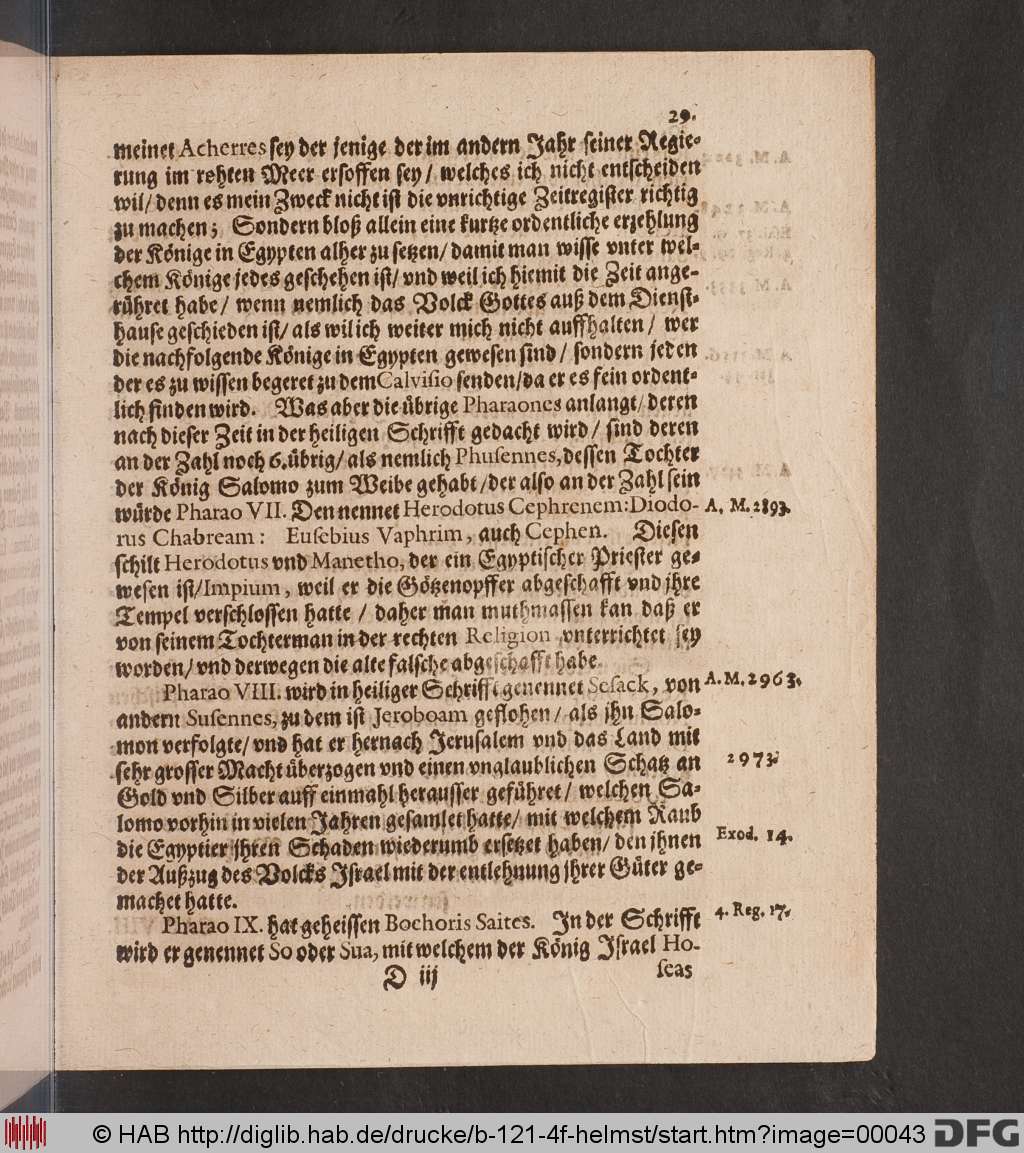 29.
meinet Acherres sey der jenige der im andern Jahr seiner Regie-
rung im rohten Meer ersoffen sey / welches ich nicht entscheiden
wil / denn es mein Zweck nicht ist die vnrichtige Zeitregister richtig
zu machen; Sondern bloß allein eine kurtze ordentliche erzehlung
der Könige in Egypten alher zu setzen / damit man wisse vnter wel-
chem Könige jedes geschehen ist / vnd weil ich hiemit die Zeit ange-
rühret habe / wenn nemlich das Volck Gottes auß dem Dienst-
hause geschieden ist / als wil ich weiter mich nicht auffhalten / wer
die nachfolgende Könige in Egypten gewesen sind / sondern jeden
der es zu wissen begeret zu dem Calvisio senden / da er es fein ordent-
lich finden wird. Was aber die übrige Pharaones anlangt / deren
nach dieser Zeit in der heiligen Schrifft gedacht wird / sind deren
an der Zahl noch 6. übrig / als nemlich Phusennes, dessen Tochter
der König Salomo zum Weibe gehabt / der also an der Zahl sein
würde Pharao VII. Den nennet Herodotus Cephrenem: Diodo- A. M. 2893.
rus Chabream: Eusebius Vaphrim, auch Cephen. Diesen
schilt Herodotus vnd Manetho, der ein Egyptischer Priester ge-
wesen ist / Impium, weil er die Götzenopffer abgeschafft vnd jhre
Tempel verschlossen hatte / daher man muthmassen kan daß er
von seinem Tochterman in der rechten Religion vnterrichtet sey
worden / vnd derwegen die alte falsche abgeschafft habe.
Pharao VIII. wird in heiliger Schrifft genennet Sesack, von A. M. 2963.
andern Susennes, zu dem ist Jeroboam geflohen / als jhn Salo-
mon verfolgte / vnd hat er hernach Jerusalem vnd das Land mit
sehr grosser Macht überzogen vnd einen vnglaublichen Schatz an 2973.
Gold vnd Silber auff einmahl herausser geführet / welchen Sa-
lomo vorhin in vielen Jahren gesamlet hatte / mit welchem Raub
die Egyptier jhren Schaden wiederumb ersetzet haben / den jhnen Exod. 14.
der Außzug des Volcks Israel mit der entlehnung jhrer Güter ge-
machet hatte.
Pharao IX. hat geheissen Bochoris Saites. In der Schrifft 4. Reg. 17.
wird er genennet So oder Sua, mit welchem der König Israel Ho-
D iij seas
© HAB http://diglib.hab.de/drucke/b-121-4f-helmst/start.htm?image=00043 DFG